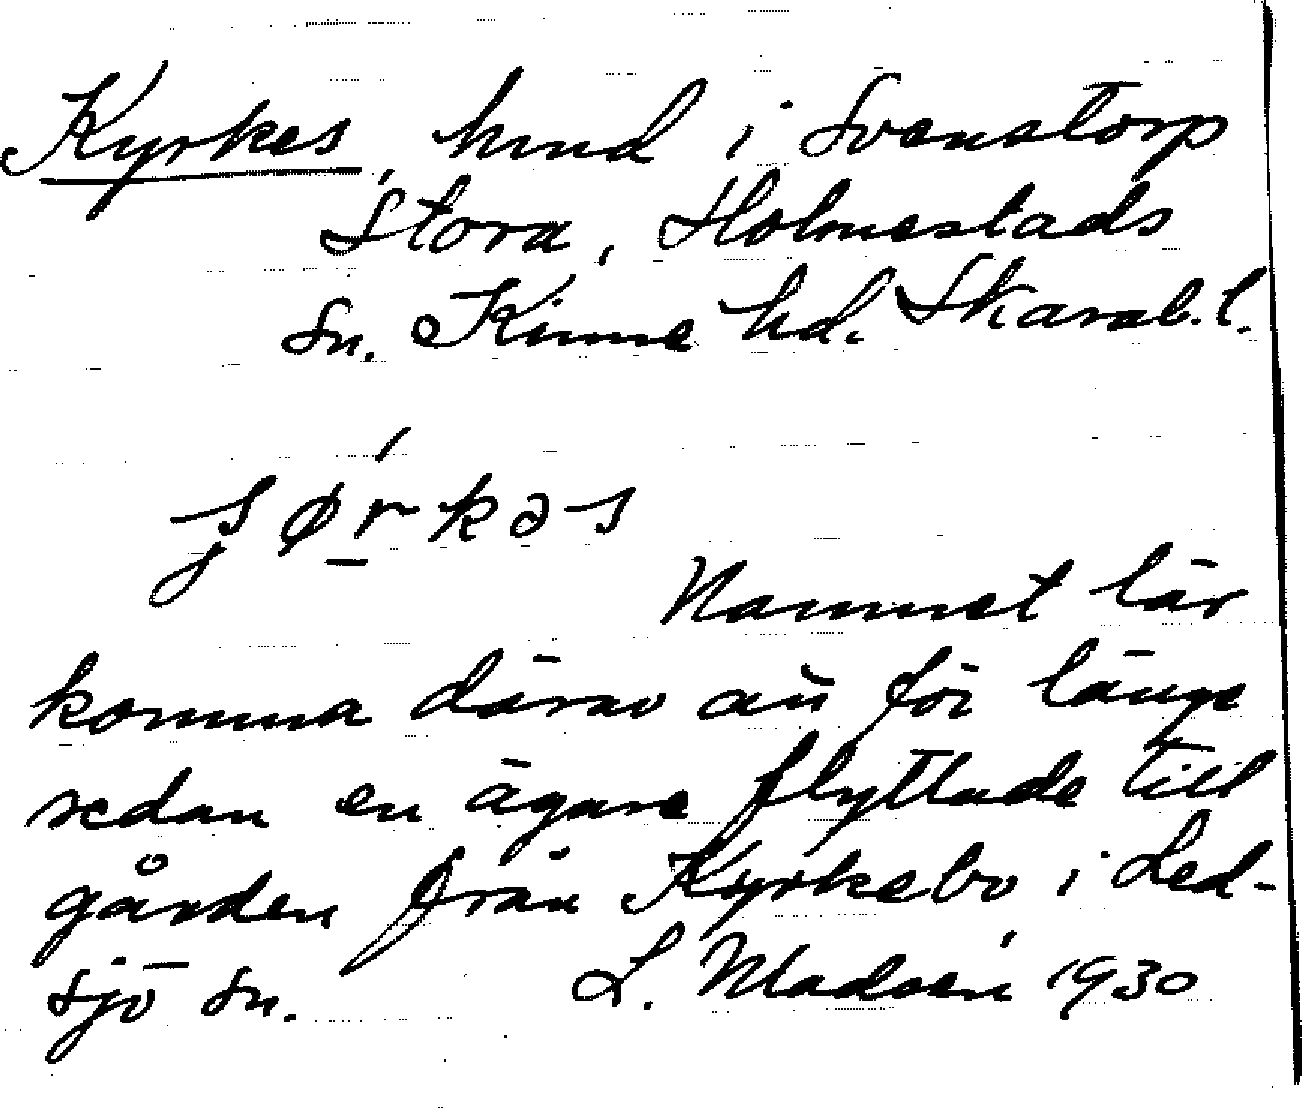 Kyrkes, hmd i Svenstorp
Stora, Holmestads
sn. Kinne hd. Skarab. l.
ʂørkəs
Namnet lär
komma därav att för länge
sedan en ägare flyttade till
gården från Kyrkebo i Led-
sjö sn. L. Madsén 1930